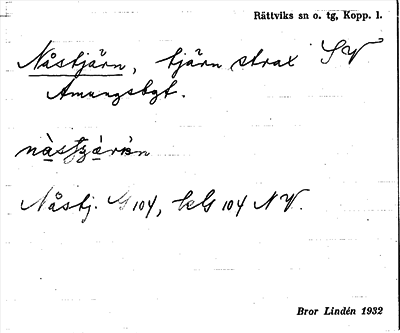 Rättviks sn o. tg, Kopp. l.
Nåstjärn, tjärn strax SV
Amungsbgt.
Nåstj. G 104, kls 104 NV.
Bror Lindén 1932